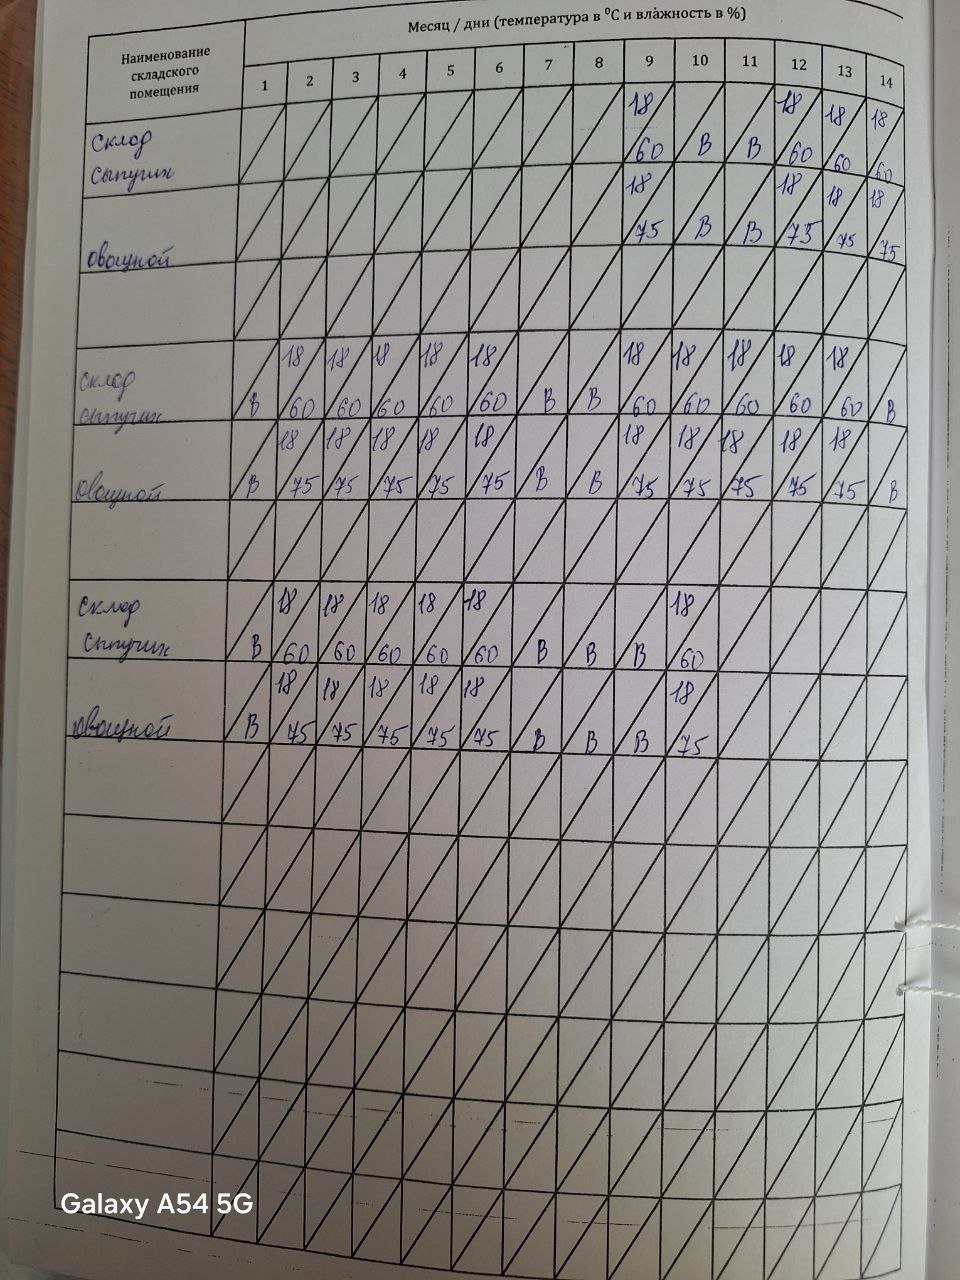 Месяц / дни (температура в °С и влажность в %)
Наименование
складского
помещения
1 2 3 4 5 6 7 8 9 10 11 12 13 14
Склад
сыпучих
18 18 18 18
60 В В 60 60 60
Овощной
18 18 18 18
75 В В 75 75 75
Склад
сыпучих
18 18 18 18 18 18 18 18 18 18
В 60 60 60 60 60 В В 60 60 60 60 60 В
Овощной
18 18 18 18 18 18 18 18 18 18
В 75 75 75 75 75 В В 75 75 75 75 75 В
Склад
сыпучих
18 18 18 18 18 18
В 60 60 60 60 60 В В В 60
Овощной
18 18 18 18 18 18
В 75 75 75 75 75 В В В 75
Galaxy A54 5G